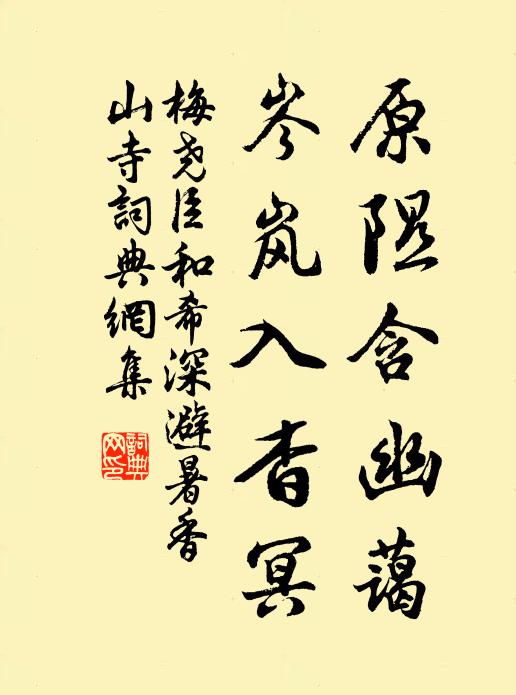 原隰含幽蔼
岑岚入杳冥
梅尧臣和希深避暑香
山寺詞典網集
詞典
网印